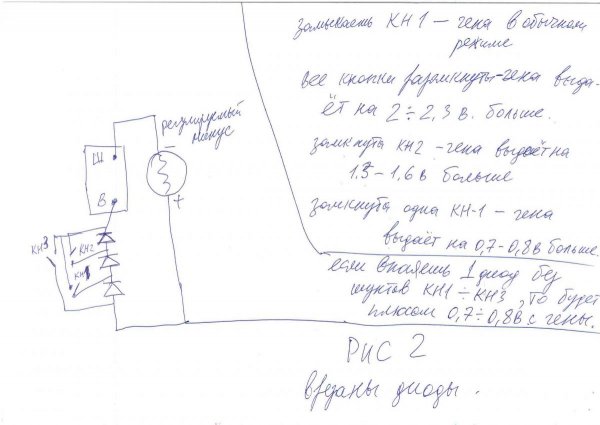 замыкаешь КН1 – гена в обычном
режиме
все кнопки разомкнуты – гена выда-
ёт на 2÷2,3 в. больше.
замкнуты КН2 – гена выдаёт на
1.5 – 1,6 в больше
замкнута одна КН-1 – гена
выдаёт на 0,7-0,8 в больше.
если впаяешь 1 диод без
шунтов КН1÷КН3, то будет
плюсом 0,7÷0,8 в с гены.
регулируемый
минус
–
Ш
В
+
КН3
КН2
КН1
РИС 2
врезаны диоды.